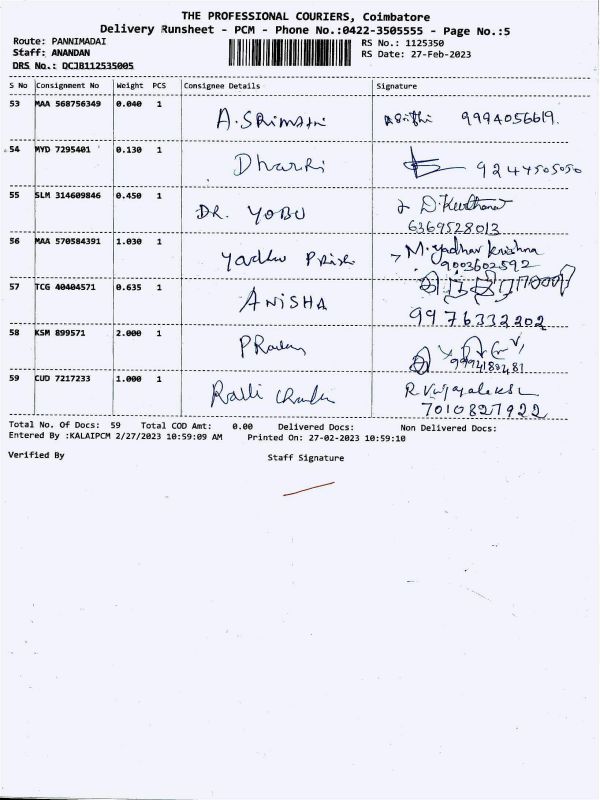 THE PROFESSIONAL COURIERS, Coimbatore
Delivery Runsheet - PCM - Phone No.:0422-3505555 - Page No.:5
Route: PANNIMADAI
RS No.: 1125350
Staff: ANANDAN
RS Date: 27-Feb-2023
DRS No.: DCJB112535005
S No Consignment No Weight PCS Consignee Details Signature
53 MAA 568756349 0.040 1 A.SRimathi 9994056619.
54 MYD 7295401 0.130 1 Dharri 9244505050
55 SLM 314609846 0.450 1 DR. YOBU
6369528013
56 MAA 570584391 1.030 1 Yadhu M.Yadhav Krishna
9003602592
57 TCG 40404571 0.635 1 ANiSHA
9976332202
58 KSM 899571 2.000 1
59 CUD 7217233 1.000 1 R Vijayalaksh
7010827922
Total No. Of Docs: 59 Total COD Amt: 0.00 Delivered Docs: Non Delivered Docs:
Entered By :KALAIPCM 2/27/2023 10:59:09 AM Printed On: 27-02-2023 10:59:10
Verified By Staff Signature